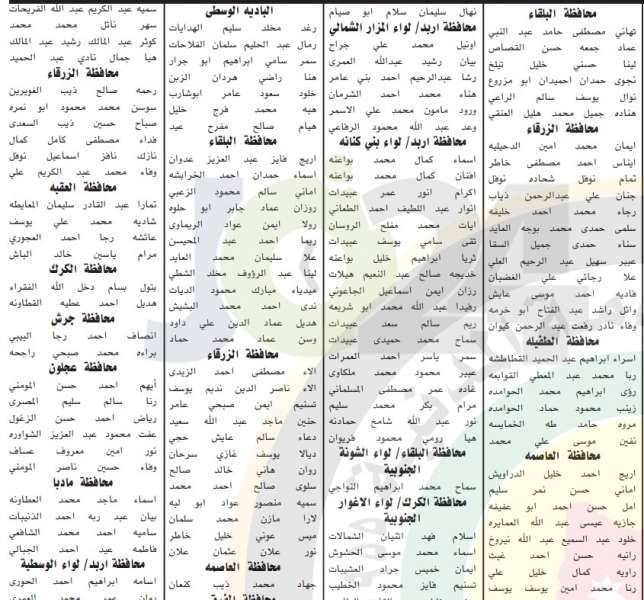 محافظة البلقاء
تهاني مصطفى حامد عبد النبي
عماد جمعه حسن القصاص
لينا حسني خليل تيلخ
نجوى حمدان احميدان ابو مزروع
نوال يوسف سالم الراعي
هناده جميل محمد هليل العنقي
محافظة الزرقاء
ايمان محمد امين الدحيليه
ايناس احمد مصطفى خاطر
تمام نوفل شحاده نوفل
جنان علي عبدالرحمن ذياب
رجاء محمد احمد خليفه
سلمى حمدى محمد بوجه العايد
سناء حمدى جميل السقا
عبير سهيل عبد الرحيم العلي
علا رجائي علي الغضبان
فاديه احمد موسى عايش
وائل راشد عبد الفتاح ابو خرمه
وفاء نادر رفعت عبد الرحمن كيوان
محافظة الطفيله
اسراء ابراهيم عبد الحميد القطاطشه
ربا محمد عبد المعطي القوابعه
رؤى ابراهيم محمد الحوامده
زينب محمود حماد الحوامده
مروه حامد طه الخمايسه
نفين موسى علي محمد
محافظة العاصمه
اريج احمد خليل الدراويش
اماني حسن نمر سليم
امل حسن احمد ابو عفيفه
جازيه عيسى عبد الله العمايره
خلود عبد السميع عبد الله نيروخ
رانيه حسن احمد غيث
راويه كمال خليل علي
رنا محمد امين يوسف يوسف
نهال سليمان سلام ابو صيام
محافظة اربد/ لواء المزار الشمالي
اونيل محمد علي جراح
بيان رشيد عبدالله العمرى
رشا عبدالرحيم احمد بني عامر
هناء محمد احمد الشرمان
ورود مامون محمد علي الاسمر
وعد عبد الله محمود الرفاعي
محافظة اربد/ لواء بني كنانه
اسماء كمال محمد بواعنه
افنان كمال محمد بواعنه
اكرام انور عمر عبيدات
انوار عبد اللطيف احمد الطعاني
ايات محمد مفلح الروسان
تقى سامي يوسف عبيدات
ثريا ابراهيم خليل بواعنه
خديجه صالح عبد النعيم هيلات
رزان ايمن اسماعيل الجاعوني
رفيدا عبد الله محمد ابو شريعه
ريم سالم سعد عبيدات
سماح محمد حميدى عبيدات
سمر ياسر احمد العمرات
عبير محمود محمد ملكاوى
غاده عمر مصطفى المسلماني
مرام بكر محمد سليم
منار عبد الله شامخ حمادنه
هيا رومي محمود فريوان
محافظة البلقاء/ لواء الشونة
الجنوبية
سماح محمد ابراهيم النواجي
محافظة الكرك/ لواء الاغوار
الجنوبية
اسلام فهد اثنيان الشمالات
اسماء محمد موسى الحشوش
ايمان خميس جراد العشيبات
تسنيم فايز محمود الخطيب
الباديه الوسطى
رغد مخلد سليم الهدايات
رمال عبد الحليم سلمان الفلاحات
سمر سامي ابراهيم ابو جرار
هنا راضي هردان الزبن
خلود سعود عامر ابوشارب
هبه محمد فرج خليل
هيام صالح مفرح عيد
محافظة البلقاء
اريج فايز عبد العزيز عدوان
اسماء حمدان احمد الخرابشه
اماني سالم محمود الزعبي
روزان عماد جابر ابو حلوه
رولا ايمن عواد الريماوى
ريما احمد عبد المحيسن
علا سليمان محمد العايد
لينا عبد الرؤوف مخلد الشطي
ميدياء مبارك محمود الديات
ندى احمد محمد البشيش
هديل عماد الدين علي داود
وسن عماد محمد حماد
محافظة الزرقاء
الاء مصطفى احمد الزيدى
الاء ناصر الدين نديم يوسف
تسنيم ايمن صبحي عامر
حنين ماجد عبد الله سعيد
دعاء سالم عايش حجي
ديالا يوسف غازي سرحان
روان هاني خالد صالح
سلوى صالح احمد محمد
سميه منصور عواد ابو لبه
لارا مازن محمد سلمان
ميس عوني خليل خاطر
نور علان عثمان علان
محافظة العاصمه
جهاد محمد ذيب كنعان
سميه عبد الكريم عبد الله الفريحات
سهر نائل محمد محمد
كوثر عبد المالك رشيد عبد المالك
هيا جمال نادي عبد الحميد
محافظة الزرقاء
رحمه صالح ذيب القويرين
سوسن محمد محمود ابو نمره
صباح حسين ذيب السعدى
فداء مصطفى كامل كمال
نازك نافز اسماعيل نوفل
وفاء محمد عبد الكريم علي
محافظة العقبه
تمارا عبد القادر سليمان المعايطه
شاديه محمد علي يوسف
عائشه رجا احمد العجوري
مرام ياسين خالد الباش
محافظة الكرك
بتول بسام دخل الله الفقراء
هديل احمد عطيه القطاونه
محافظة جرش
انصاف احمد رجا البيبي
براءه محمد صبحي راجحه
محافظة عجلون
أيهم احمد حسن المومني
رنا سالم سليم المصرى
رياض احمد حسن الزغول
عفت محمود عبد العزيز الشواوره
نور امين معروف عساف
وفاء حسين ناصر المومني
محافظة مادبا
اسماء ماجد محمد العطاونه
بيان عبد ربه احمد الذنيبات
ساميه احمد محمد الشافعي
فاطمه عيد احمد الجبالي
محافظة اربد/ لواء الوسطية
اسامه ابراهيم احمد الحورى